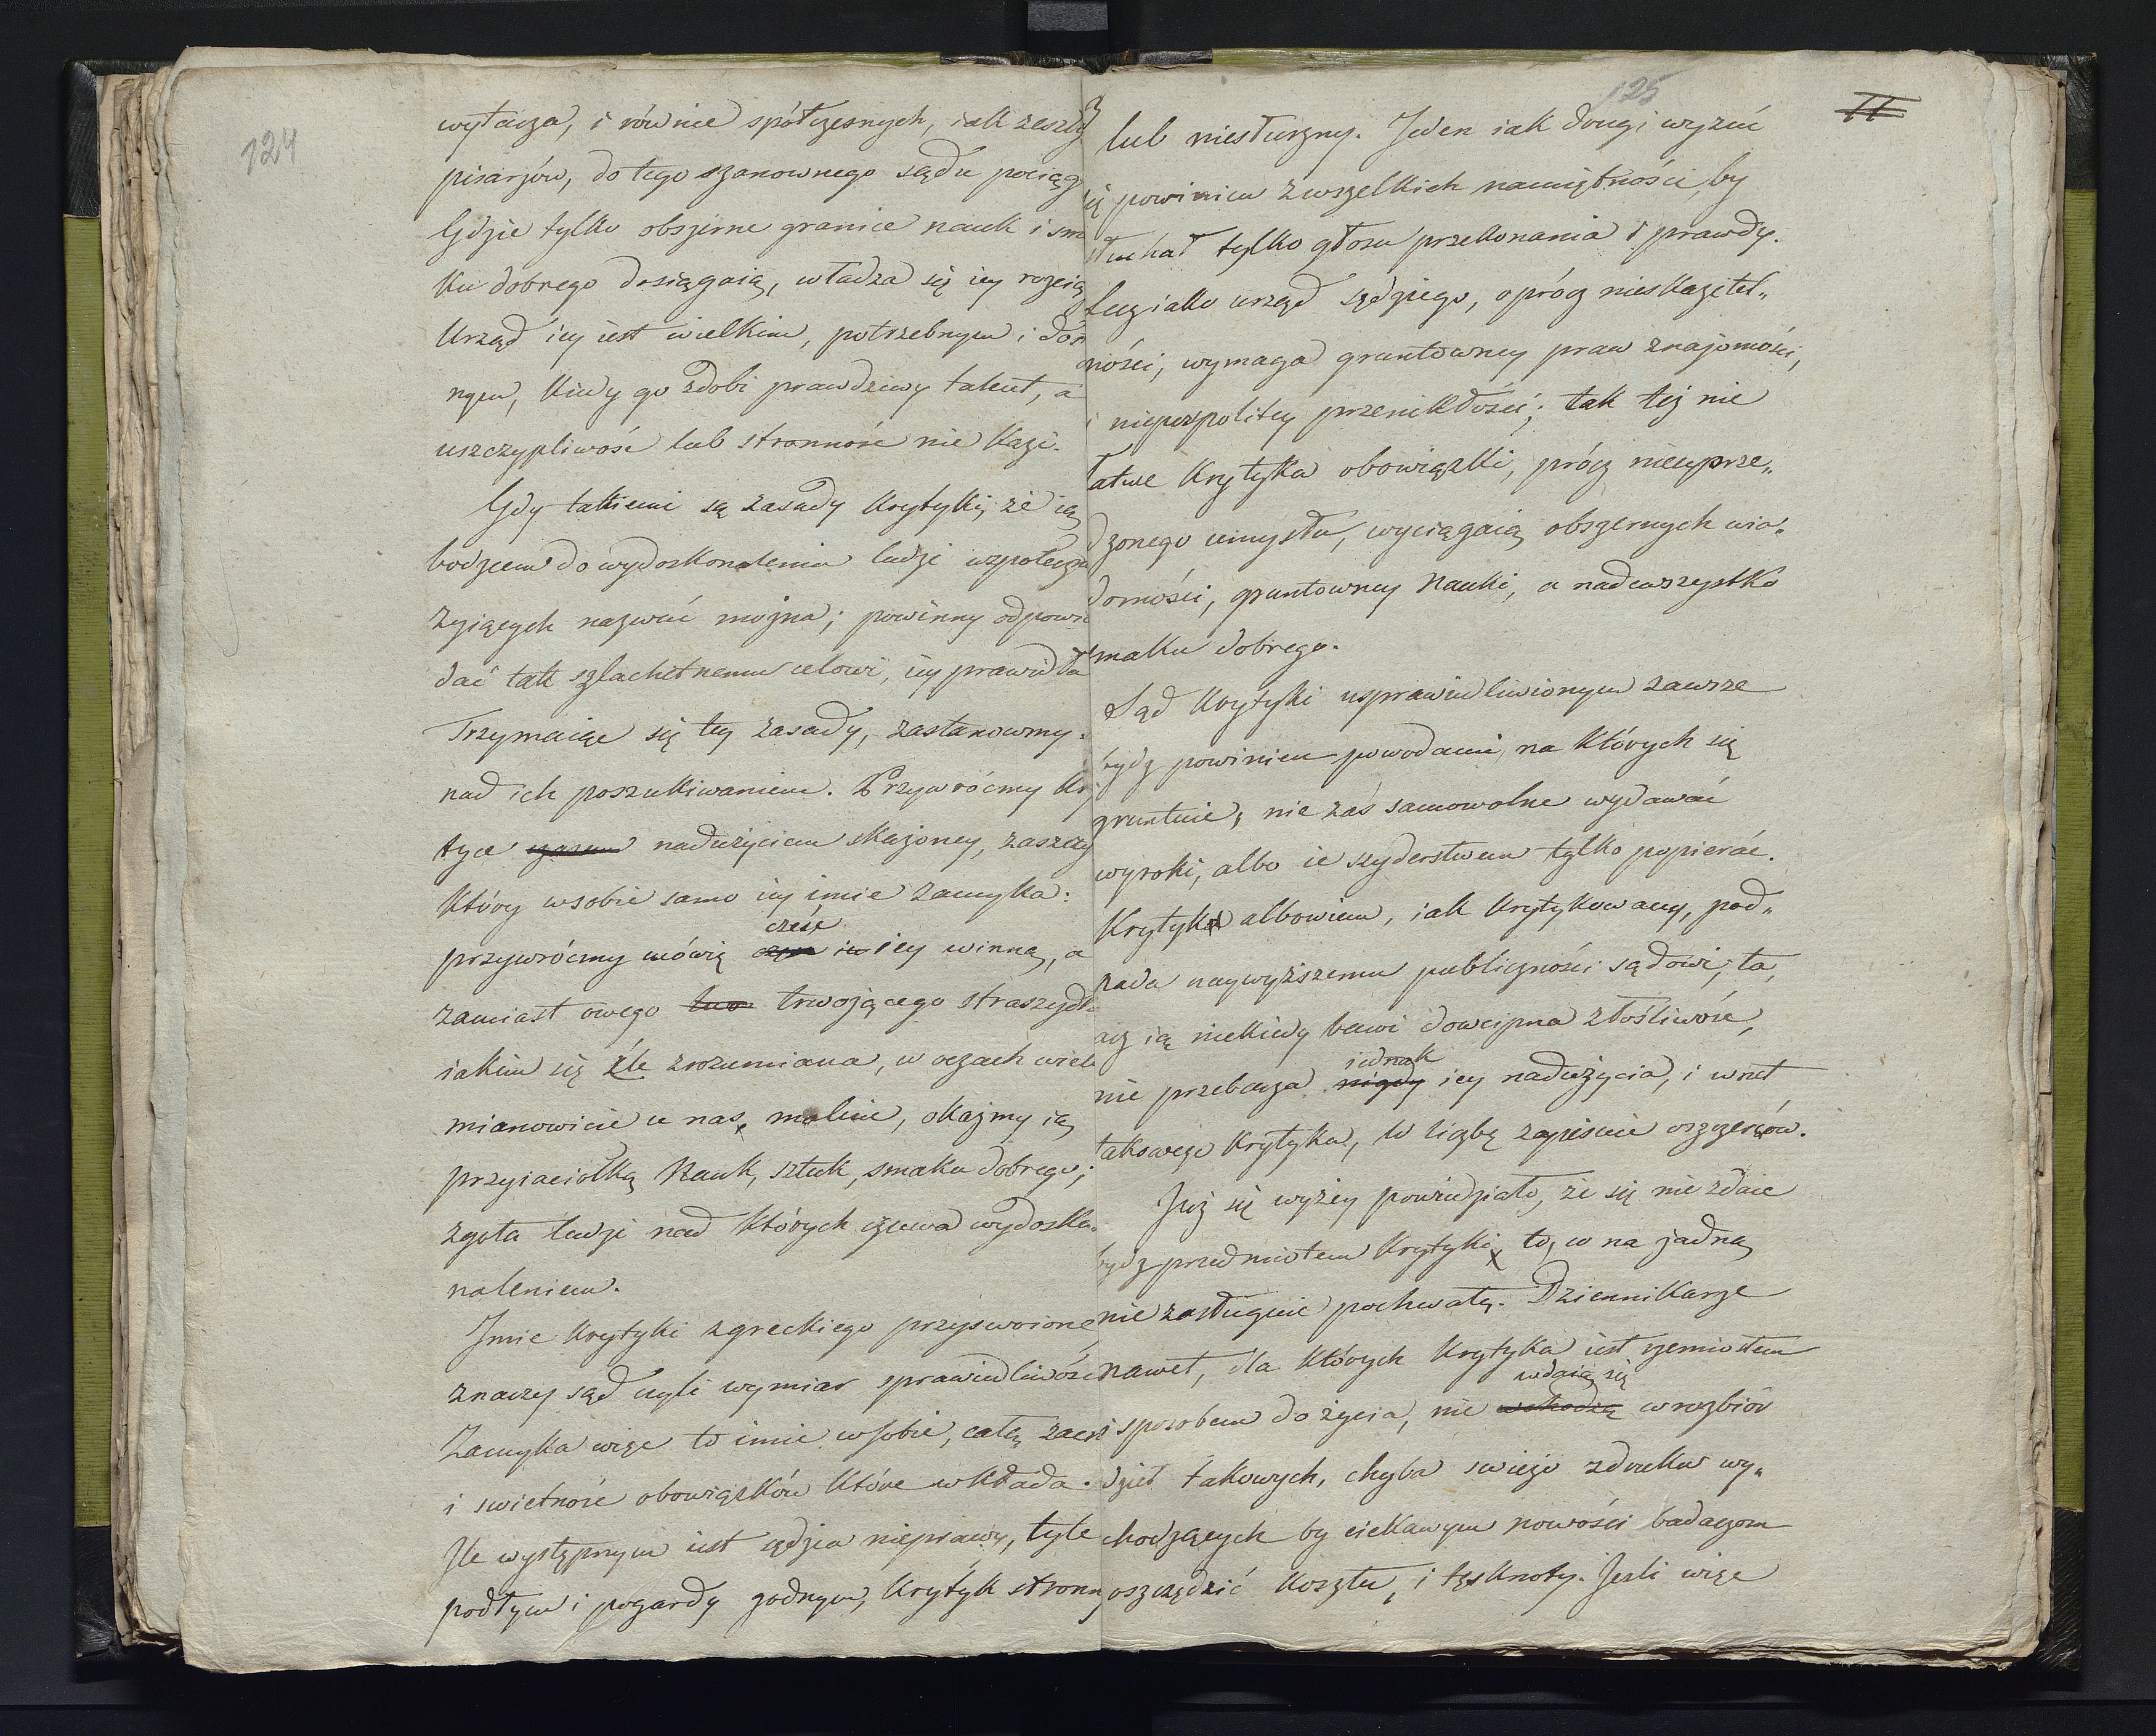 124
wytacza, i równie spółczesnych, iak zeszły
pisarzów, do tego szanownego sądu pociąg
Gdzie tylko obszerne granice nauk i sma
ku dobrego dosięgaią, władza się iey rozcią
Urząd iey iest wielkim, potrzebnym i
nym, kiedy go zdobi prawdziwy talent, a
uszczypliwość lub stronność nie kazi.
Gdy takiemi są zasady krytyki, że ią
bodzcem do wydoskonalenia ludzi wspołecz
żyiących nazwać można; powinny odpowi
dać tak szlachetnemu celowi, iey prawidła
Trzymaiąc się tey zasady, zastanowmy
nad ich poszukiwaniem. Przywróćmy kry
tyce czasem nadużyciem skażoney, zaszczy
który w sobie samo iey imie zamyka:
przywróćmy mówię cześć iey winną, a
zamiast owego trwożącego straszydł
iakim się źle zrozumiana, w oczach wielu
mianowicie u nas, maluie, okażmy ią
przyiaciołką Nauk, sztuk, smaku dobrego;
zgoła ludzi nad których czuwa wydosko„
naleniem.
Imie krytyki z greckiego przyswoione
znaczy sąd czyli wymiar sprawiedliwośc
Zamyka więc to imie w sobie, całą zacn
i swietność obowiązków które wkłada.
Ile występnym iest sędzia nieprawy, tyle
podłym i pogardy godnym, krytyk stronny
125
11
lub niesłuszny. Jeden iak drugi wyzuć
ię powinien z wszelkich namiętności, by
słuchał tylko głosu przekonania i prawdy.
Lecz iako urząd sędziego, oprócz nieskazitel„
ności, wymaga gruntowney praw znajomości,
i niepospolitey przenikłości; tak też nie
łatwe krytyka obowiązki, prócz nieuprze„
dzonego umysłu, wyciągaią obszernych wia„
domości, gruntowney Nauki, a nadewszystko
smaku dobrego.
Sąd krytyki usprawiedliwionym zawsze
bydz powinien powodami, na których się
gruntuie, nie zaś samowolne wydawać
wyroki, albo ie szyderstwem tylko popierać.
Krytyk albowiem, iak krytykowany, pod„
pada naywyższemu publiczności sądowi; ta,
acz ią niekiedy bawi dowcipna złośliwość,
nie przebacza nigdy iednak iey nadużycia, i wnet
takowego krytyka, w liczbę zapisuie oszczerców.
Już się wyżey powiedziało, że się nie zdaie
bydz przedmiotem krytyki, to, co na żadną
nie zasługuie pochwałę. Dziennikarze
nawet, dla których krytyka iest rzemiosłem
i sposobem do życia, nie wchodzą wdaią się w rozbiór
dzieł takowych, chyba swieżo zdruku wy„
chodzących by ciekawym nowości badaczom
oszczędzić kosztu, i tęsknoty. Jesli więc